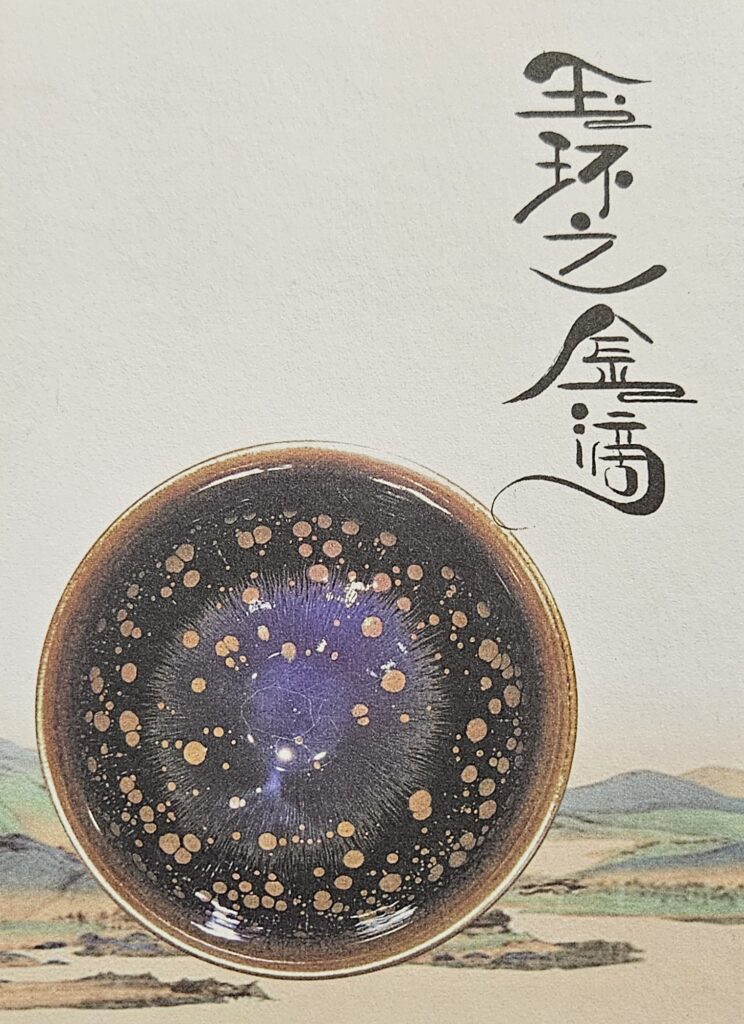 玉环之金滴